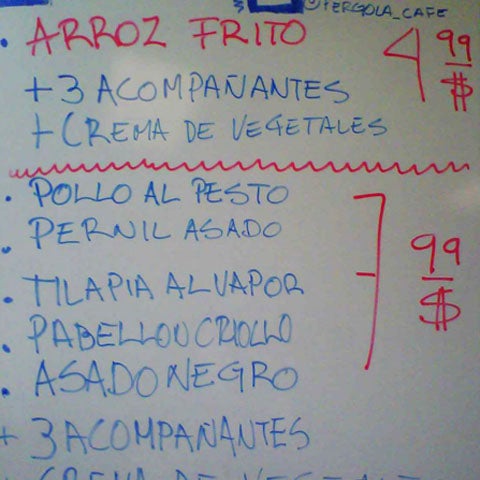 @PERGOLA_CAFE
• ARROZ FRITO
+ 3 ACOMPAÑANTES
+ CREMA DE VEGETALES
4 99 $
• POLLO AL PESTO
• PERNIL ASADO
• TILAPIA AL VAPOR
• PABELLON CRIOLLO
• ASADO NEGRO
99 $
+ 3 ACOMPAÑANTES
+ CREMA DE VEGETALES